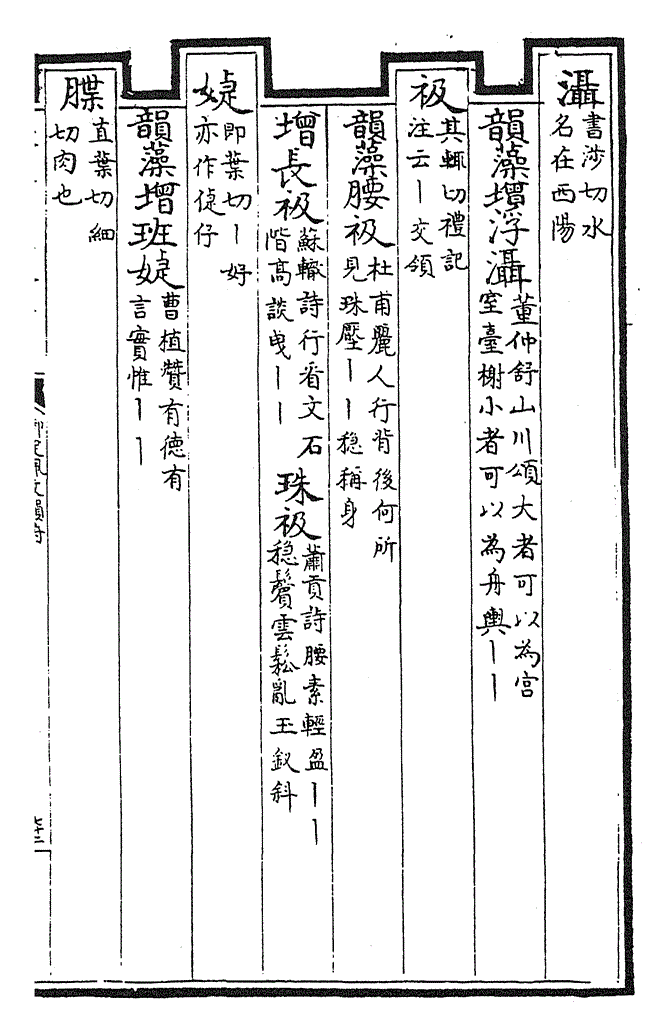 灄書涉切水名在西陽
韻藻增浮灄董仲舒山川頌大者可以為宫室臺榭小者可以為舟輿丨丨
衱其輒切禮記注云丨交領
韻藻腰衱杜甫麗人行背後何所見珠壓丨丨穏稱身
增長衱蘇轍詩行看文石階髙談曳丨丨珠衱蕭貢詩腰素輕盈丨丨穏鬢雲鬆亂玉釵斜
婕即葉切丨好亦作倢伃
韻藻增班婕曹植贊有德有言實惟丨丨
䐑直葉切細切肉也